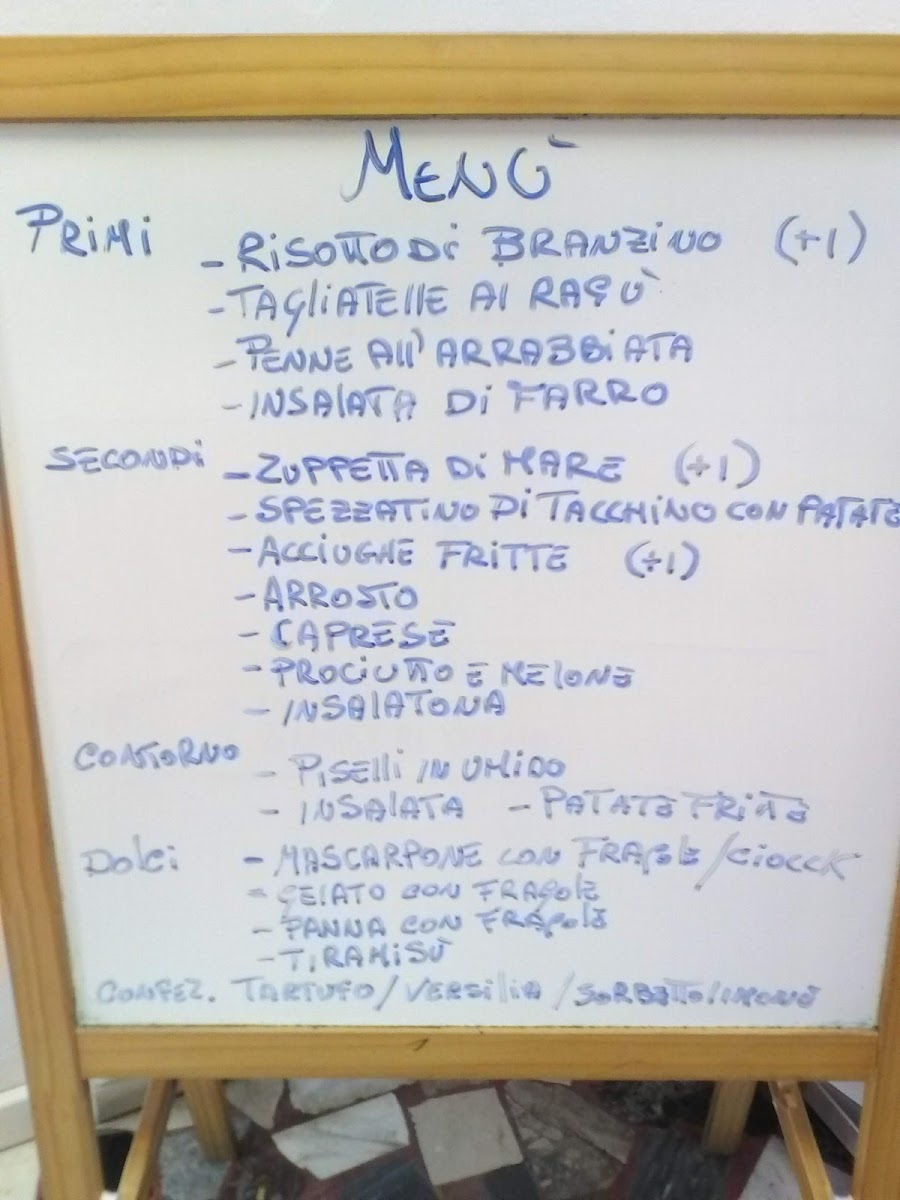 MENÙ
PRIMI - RISOTTO DI BRANZINO (+1)
- TAGLIATELLE AL RAGÙ
- PENNE ALL'ARRABBIATA
- INSALATA DI FARRO
SECONDI - ZUPPETTA DI MARE (+1)
- SPEZZATINO DI TACCHINO CON PATATE
- ACCIUGHE FRITTE (+1)
- ARROSTO
- CAPRESE
- PROCIUTTO E MELONE
- INSALATONA
CONTORNO - PISELLI IN UMIDO
- INSALATA - PATATE FRITTE
DOLCI - MASCARPONE CON FRAGOLE/CIOCCK
- GELATO CON FRAGOLE
- PANNA CON FRAGOLE
- TIRAMISÙ
CONFEZ. TARTUFO/VERSILIA/SORBETTO LIMONE